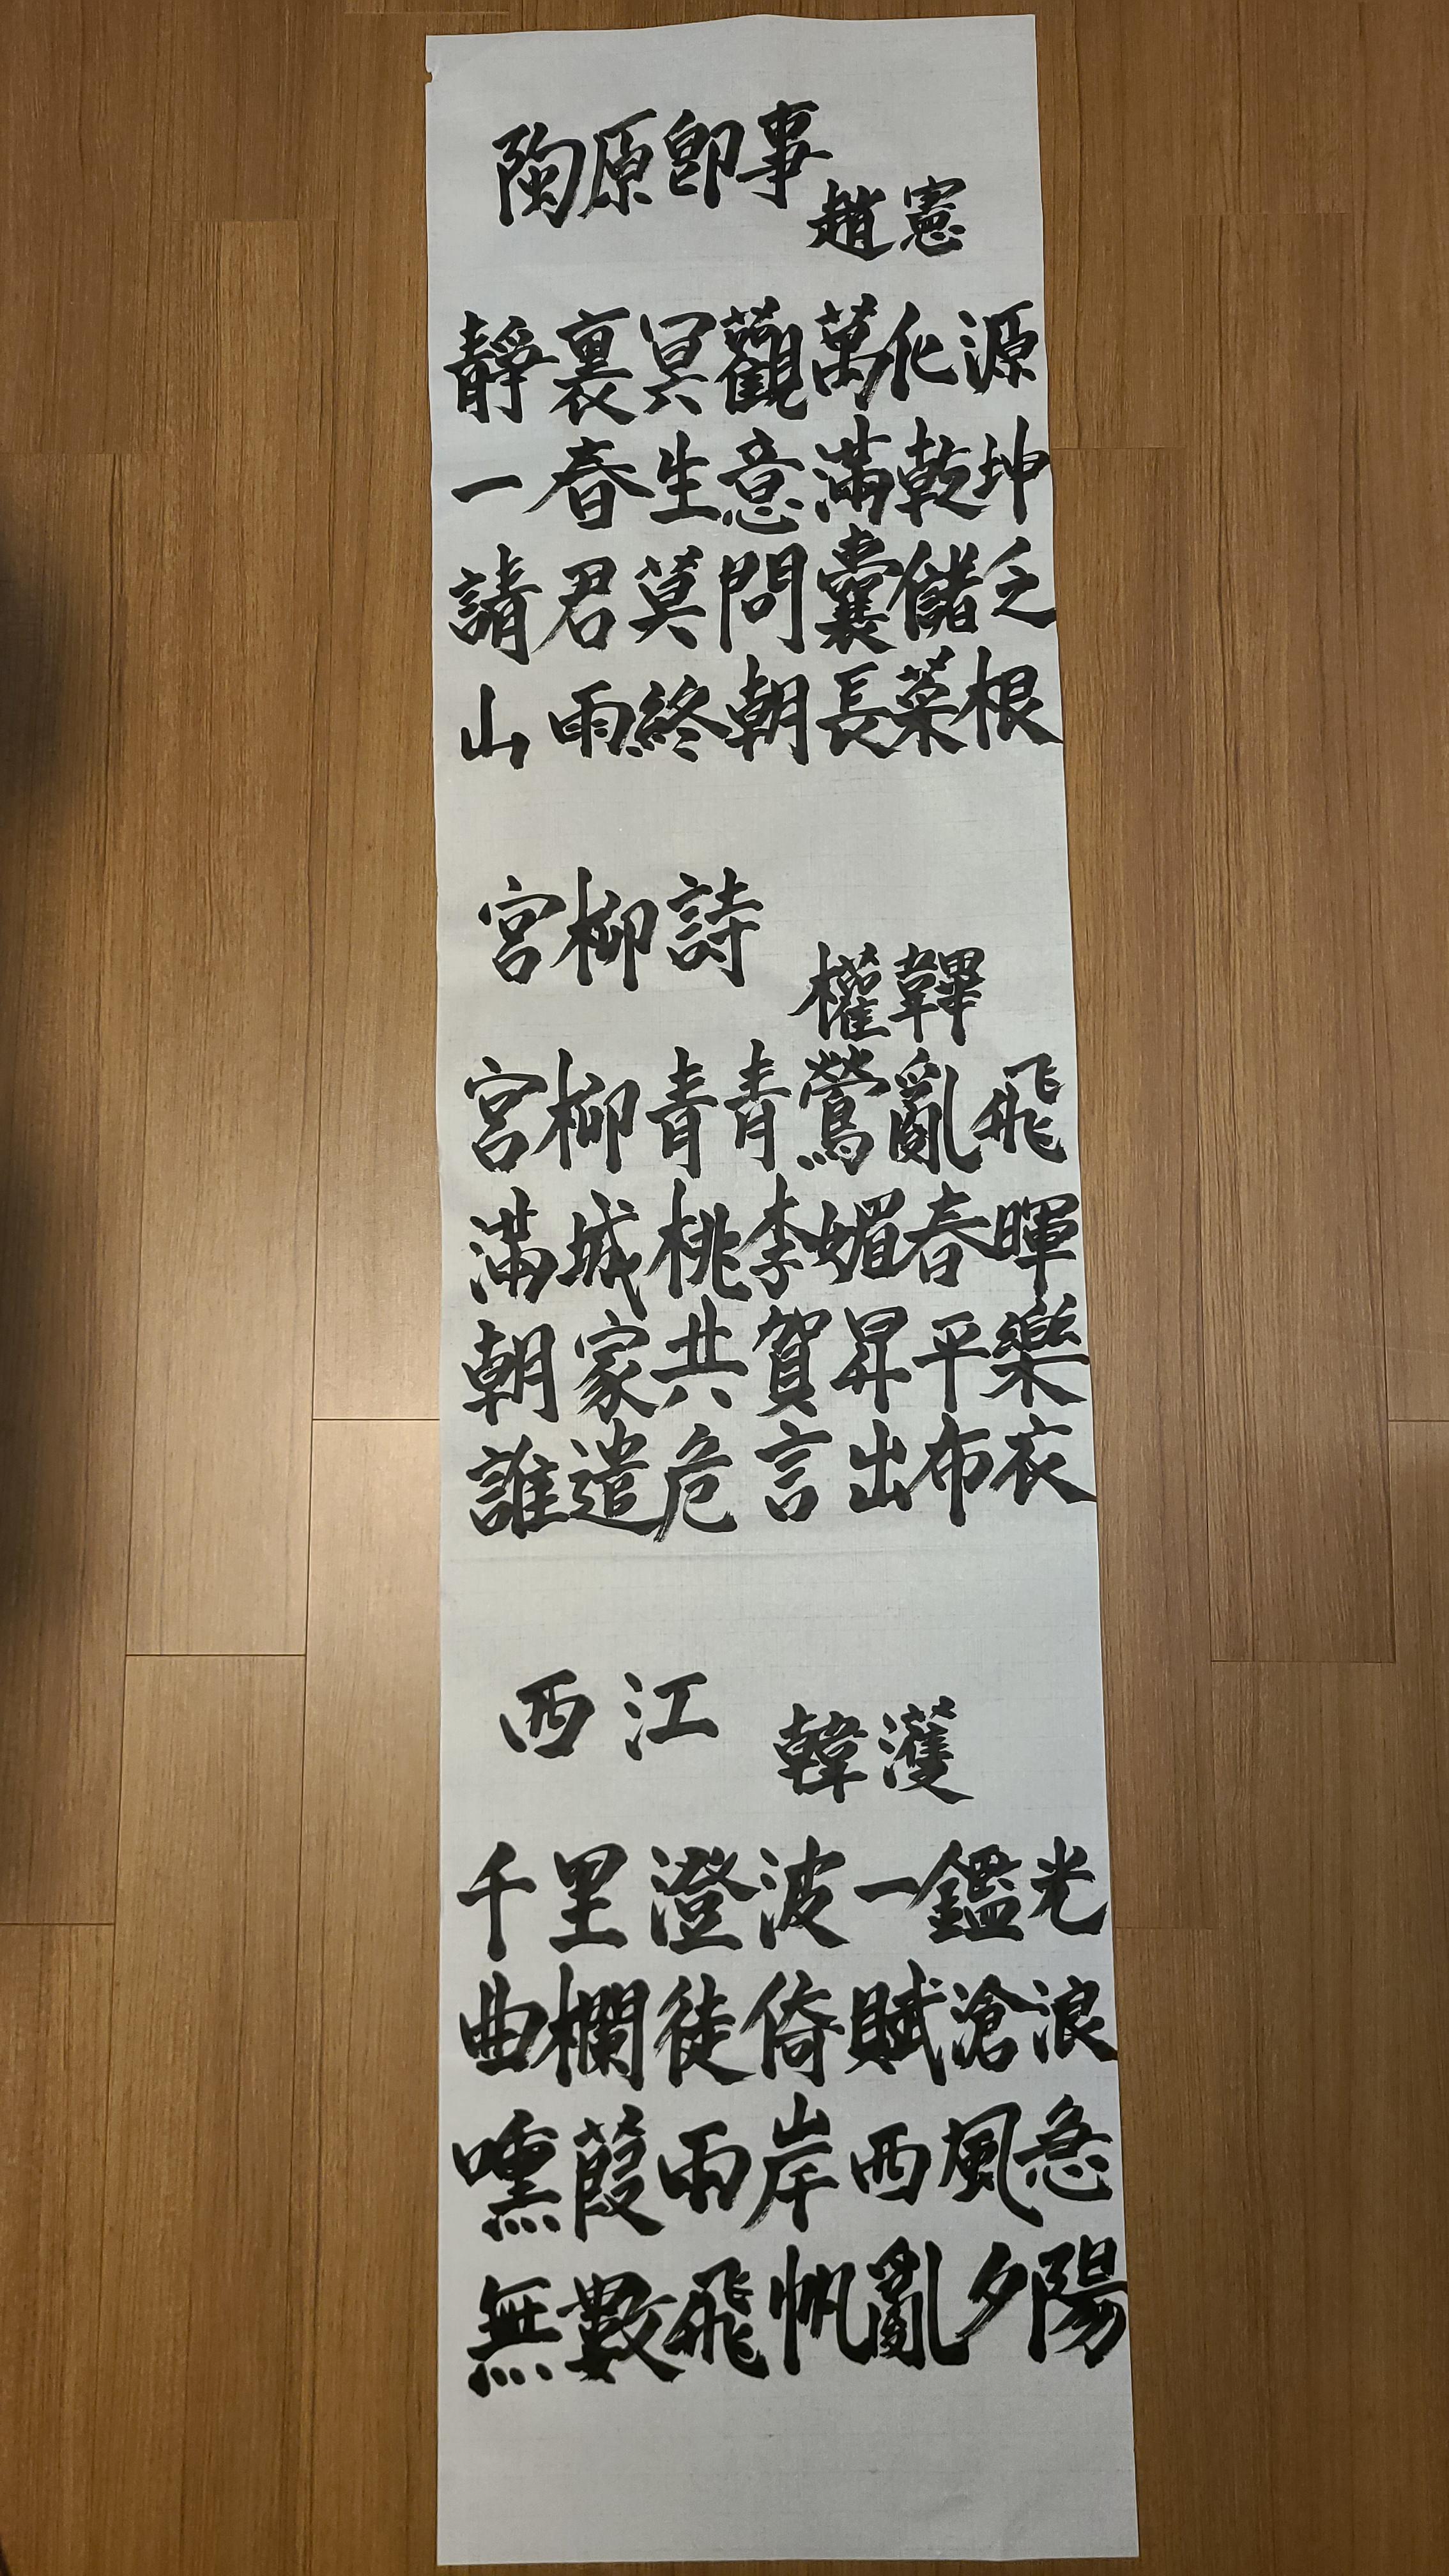 陶原即事
趙憲
靜裏冥觀萬化源
一春生意滿乾坤
請君莫問囊儲乏
山雨終朝長菜根
宮柳詩
權韠
宮柳青青鶯亂飛
滿城桃李媚春暉
朝家共賀昇平樂
誰遣危言出布衣
西江
韓濩
千里澄波一鑑光
曲欄徒倚賦滄浪
嚑葭雨岸西風急
無數飛帆亂夕陽